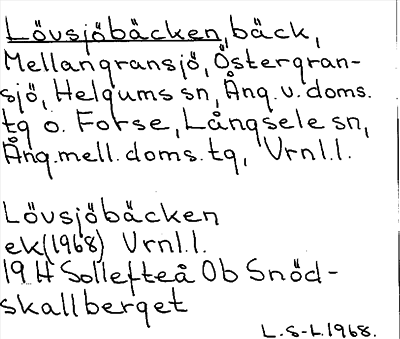 Lövsjöbäcken, bäck,
Mellangransjö, Östergran-
sjö, Helgums sn, Ång. v. doms.
tg o. Forse, Långsele sn,
Ång. mell. doms. tg, Vrnl.l.
Lövsjöbäcken
ek(1968) Vrnl.l.
19 H Sollefteå Ob Snöd-
skallberget
L.S-L.1968.